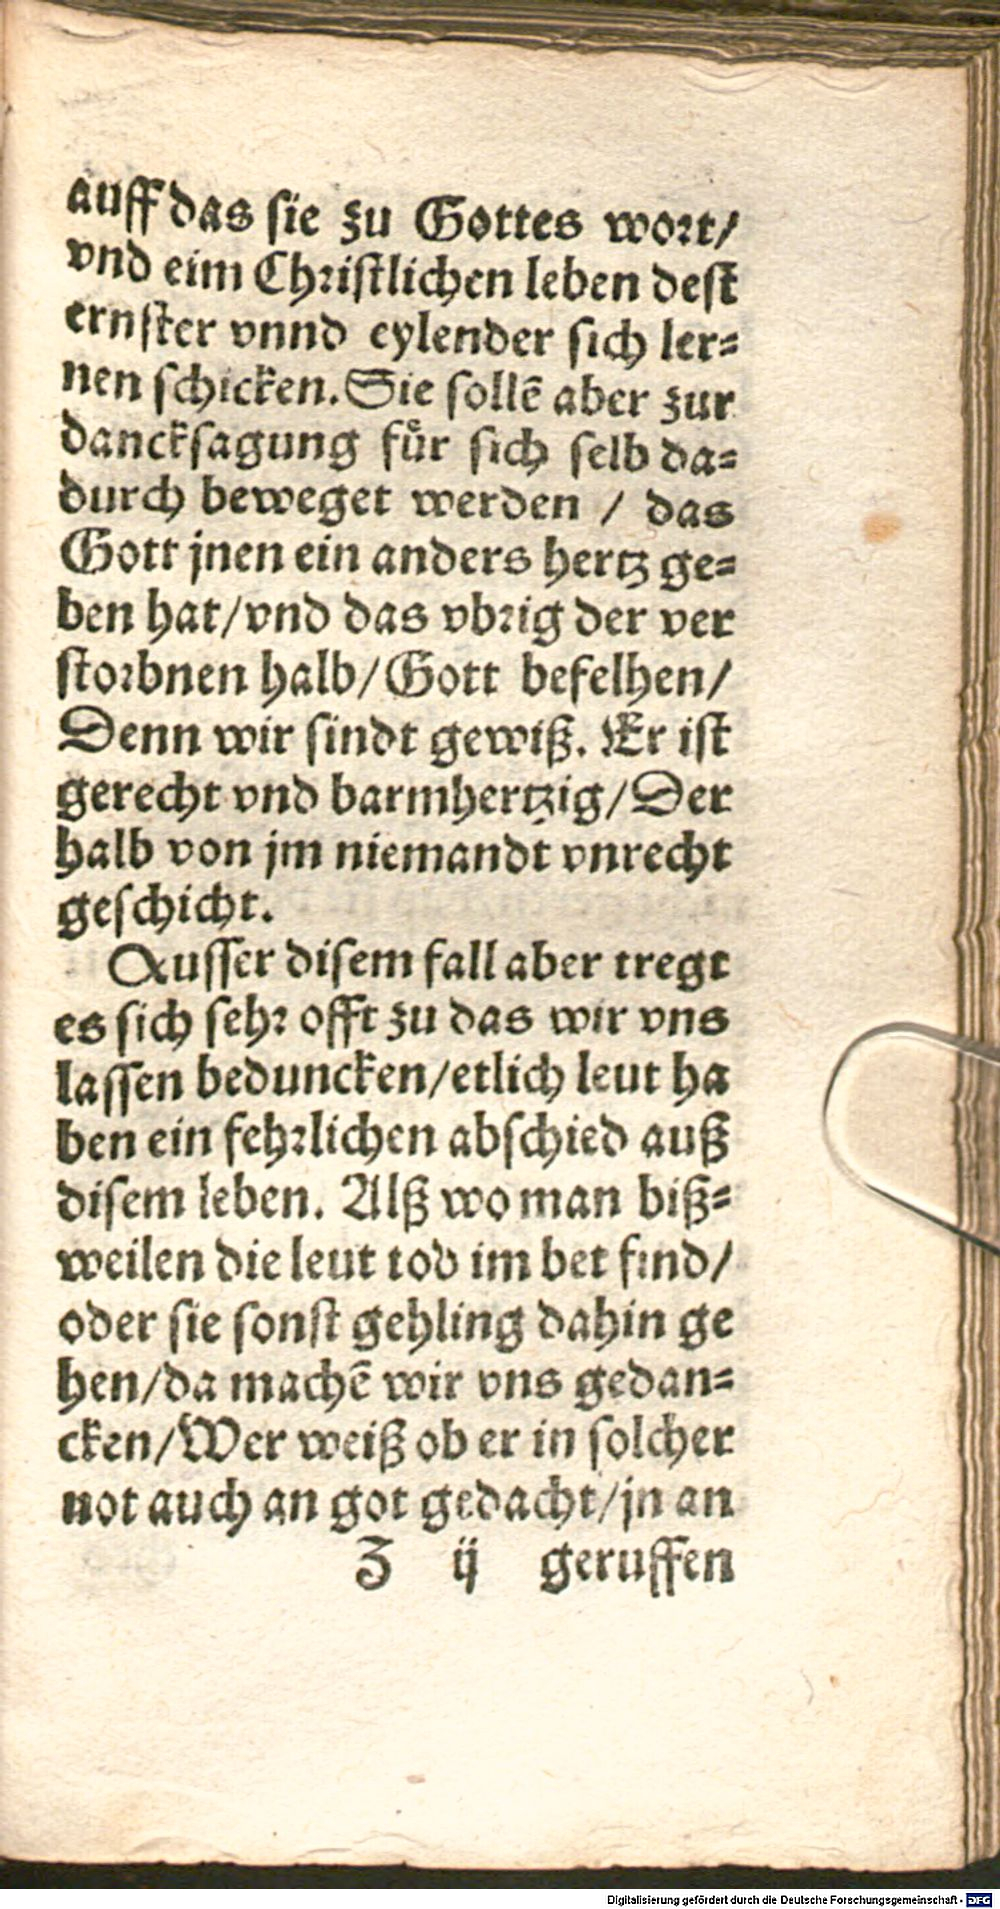 auff das sie zu Gottes wort/
vnd eim Christlichen leben dest
ernster vnnd eylender sich ler=
nen schicken. Sie sollē aber zur
dancksagung fuͤr sich selb da=
durch beweget werden / das
Gott jnen ein anders hertz ge=
ben hat/vnd das vbrig der ver
storbnen halb/Gott befelhen/
Denn wir sindt gewiß. Er ist
gerecht vnd barmhertzig/Der
halb von jm niemandt vnrecht
geschicht.
Ausser disem fall aber tregt
es sich sehr offt zu das wir vns
lassen beduncken/etlich leut ha
ben ein fehrlichen abschied auß
disem leben. Alß wo man biß=
weilen die leut tod im bet find/
oder sie sonst gehling dahin ge
hen/da machē wir vns gedan=
cken/Wer weiß ob er in solcher
not auch an got gedacht/jn an
Z ij geruffen
Digitalisierung gefördert durch die Deutsche Forschungsgemeinschaft - DFG